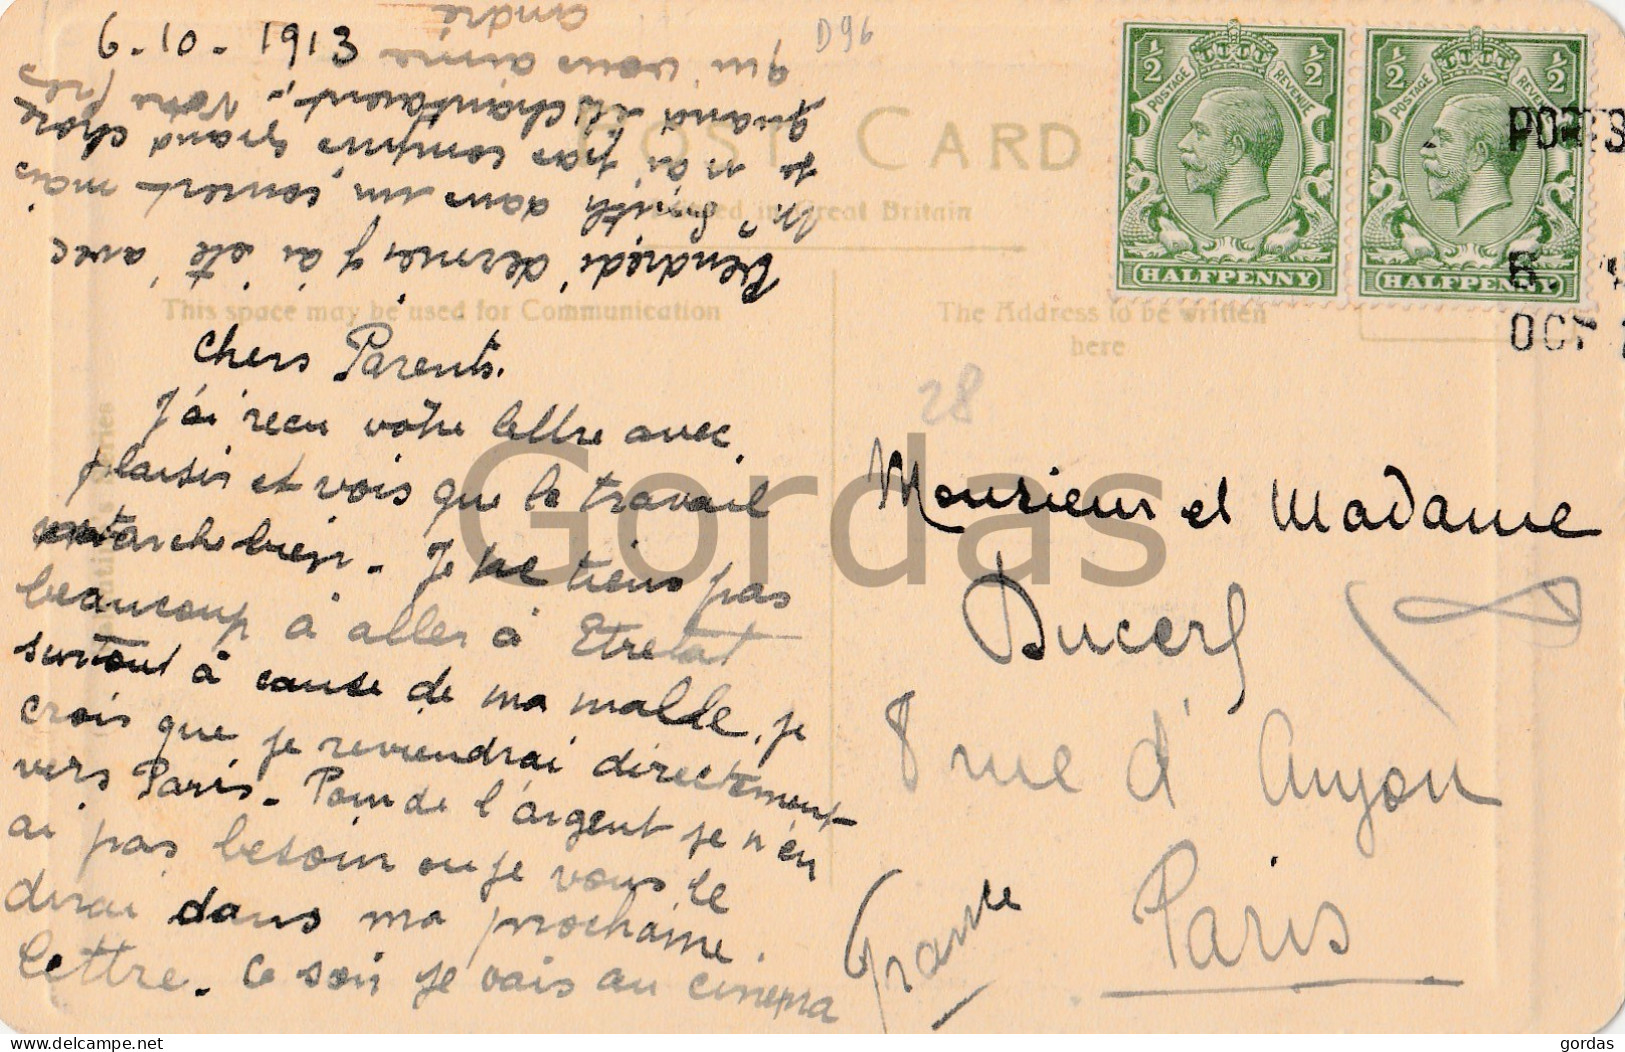 6-10-1913
D96
POST CARD
Printed in Great Britain
This space may be used for Communication
The Address to be written
here
½ ½
POSTAGE REVENUE
HALFPENNY
½ ½
POSTAGE REVENUE
HALFPENNY
PORTS
6.
OCT
28
chers Parents.
J'ai recu votre lettre avec
plaisir et vois que le travail
marche bien. Je ne tiens pas
beaucoup à aller à Etretat
surtout à cause de ma malle, je
crois que je reviendrai directement
vers Paris. Pour de l'argent je n'en
ai pas besoin ou je vous le
dirai dans ma prochaine
lettre. Ce soir je vais au cinema
Vendredi dernier j'ai été avec
Mr Smith dans un concert mais
je n'ai pas compris grand chose
quand ils chantaient. Votre
qui vous aime
andré
Monsieur et Madame
Ducerf
8 rue d'Anjou
Paris
France
Gordas
www.delcampe.net
gordas